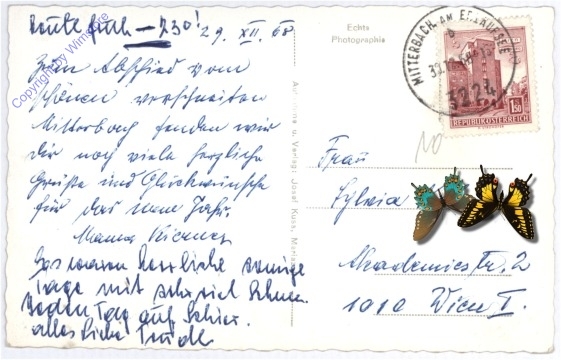 Heute früh – 230!
29. XII. 68
Zum Abschied vom
schönen verschneiten
Mitterbach senden wir
Dir noch viele herzliche
Grüße und Glückwünsche
für das neue Jahr.
Mama
Es waren herrliche sonnige
Tage mit sehr viel Schnee.
Jeden Tag auf Schier.
alles liebe Trudl
Echte
Photographie
Aufnahme u. Verlag: Josef Kuss, Mariazell
MITTERBACH AM ERLAUFSEE
3224
1.50
REPUBLIK ÖSTERREICH
10
Frau
Sylvia
Akademiestr. 2
1010 Wien I.
Copyright by Winstore